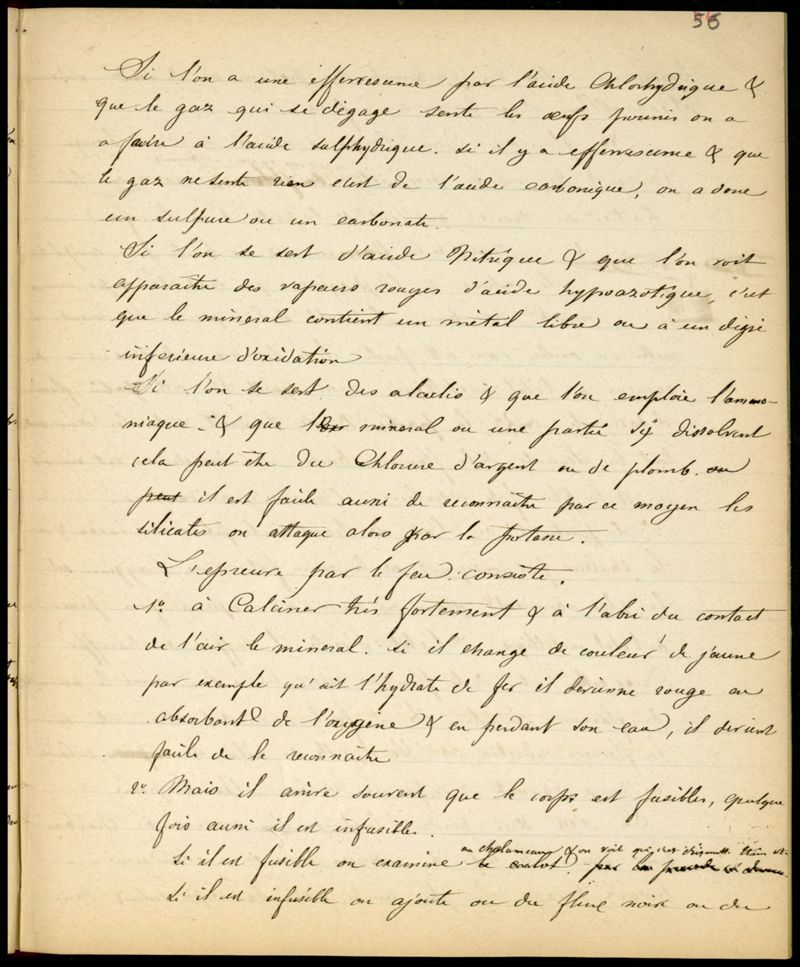 56
Si l'on a une effervescence par l'acide Chlorhydrique &
que le gaz qui se dégage sente les œufs pourris on a
affaire à l'acide sulphydrique. si il y a effervescence & que
le gaz ne sente rien c'est de l'acide carbonique, on a donc
un sulfure ou un carbonate.
Si l'on se sert d'acide Nitrique & que l'on voit
apparaitre des vapeurs rouges d'acide hypoazotique, c'est
que le mineral contient un métal libre ou à un dégré
inferieure d'oxidation
Si l'on se sert des alcalis & que l'on emploie l'ammo-
niaque - & que le mineral ou une partie s'y dissolvent
cela peut être du Chlorure d'argent ou de plomb. ou
peut il est facile aussi de reconnaitre par ce moyen les
silicates on attaque alors par la potasse.
L'epreuve par le feu consiste.
1º à Calciner trés fortement & à l'abri du contact
de l'air le mineral. si il change de couleur de jaune
par exemple qu'est l'hydrate de fer il devienne rouge en
absorbant de l'oxygène & en perdant son eau, il devient
facile de le reconnaitre
2º Mais il arrive souvent que le corps est fusibles, quelque
fois aussi il est infusibles.
au chalumeau & on voit
Si il est fusible on examine le culot
Si il est infusible on ajoute ou du flux noir ou du